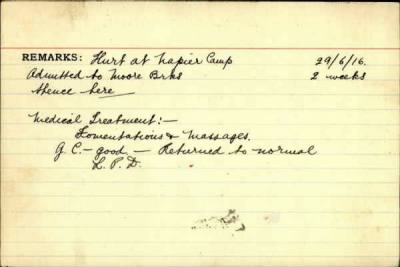 REMARKS: Hurt at Napier Camp 29/6/16.
Admitted to Moore Brks 2 weeks
thence here
Medical Treatment:-
Fomentations & Massages.
G.C. - good - Returned to normal
L.P.D.